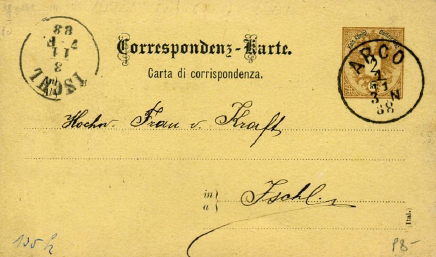 Correspondenz-Karte.
Carta di corrispondenza.
ISCHL
3
11
88
ARCO
2
11
3 N
88
Hochw. Frau v. Kraft
in
a
Ischl.
(Ital.)
P8-